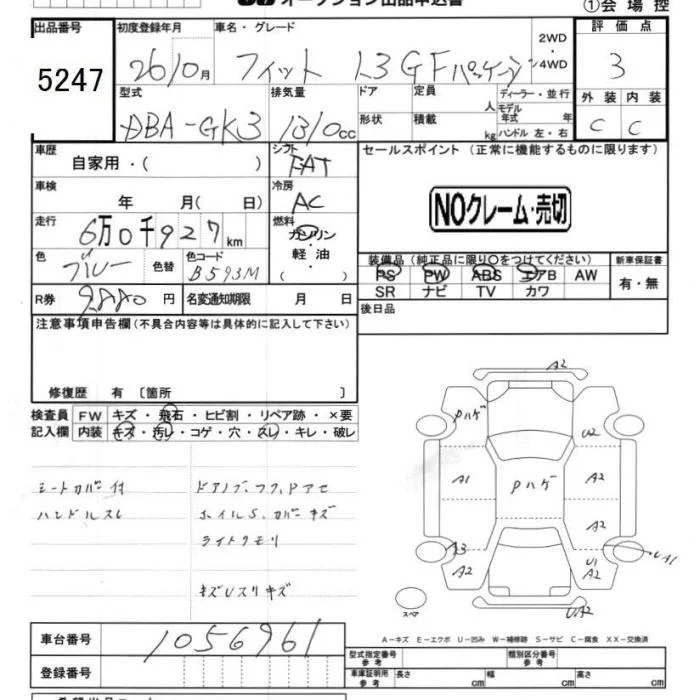 オークション出品申込書
①会場控
出品番号 初度登録年月 車名・グレード 評価点
5247 26/0月 フィット 1.3GFパッケージ 2WD・4WD 3
型式 排気量 ドア 定員 ディーラー・並行 外装 内装
DBA-GK3 1310cc 形状 積載 人 kg モデル年式 年 ハンドル 左・右 C C
車歴 シフト セールスポイント (正常に機能するものに限ります)
自家用・( ) FAT
車検 冷房
年 月( 日) AC
NOクレーム・売切
走行 燃料
6万0千927km ガソリン・軽油・( )
色 色替 色コード 装備品 (純正品に限り○をつけてください) 新車保証書
ブルー B593M PS PW ABS エアB AW 有・無
SR ナビ TV カワ
R券 9880円 名変通知期限 月 日 後日品
注意事項申告欄(不具合内容等は具体的に記入して下さい)
修復歴 有 〔箇所 〕
検査員 FW キズ・飛石・ヒビ割・リペア跡・×要
記入欄 内装 キズ・汚レ・コゲ・穴・スレ・キレ・破レ
シートカバー付 ドアノブ、フク、Pアセ
ハンドルスレ ホイルS、カバーキズ
ライトクモリ
キズUスリキズ
A2
Pハゲ
U2
A1 Pハゲ A2
A2
A3 UA1
A2 U1 A2
スペア UA2
A-キズ E-エクボ U-凹み W-補修跡 S-サビ C-腐食 XX-交換済
車台番号 1056961 型式指定番号 参考 類別区分番号 参考
登録番号 車庫証明用 参考 長さ cm 幅 cm 高さ cm